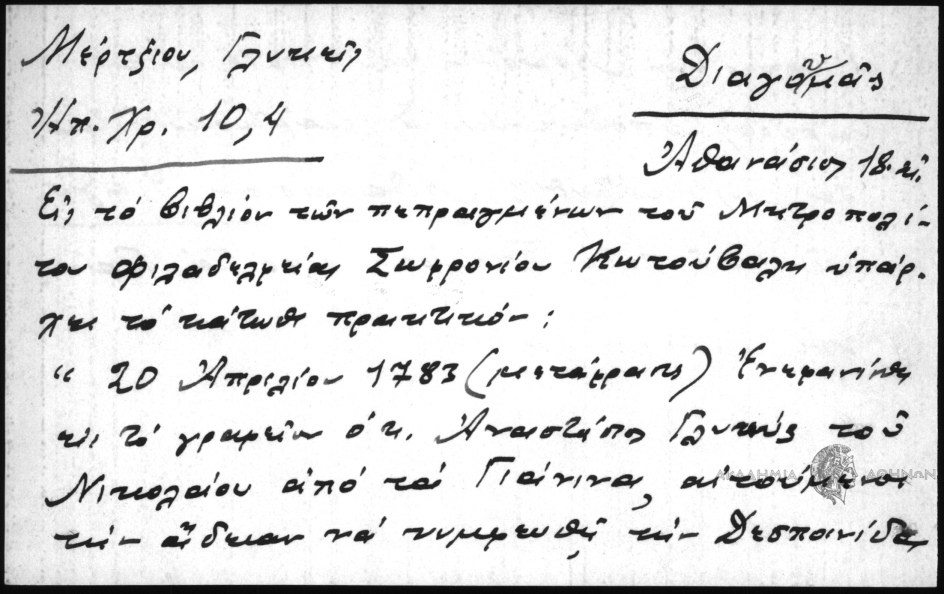 Μέρτζιου, Γλυκεῖς
Διαγοῦμᾶς
Ἠπ. Χρ. 10, 4
Ἀθανάσιος 18. αἰ.
Εἰς τό βιβλίον τῶν πεπραγμένων τοῦ Μητροπολί-
του Φιλαδελφείας Σωφρονίου Κουτούβαλη ὑπάρ-
χει τό κάτωθι πρακτικόν:
“ 20 Ἀπριλίου 1783 (μετάφρασις) Ἐνεφανίσθη
εἰς τό γραφεῖον ὁ κ. Ἀναστάσιος Γλυκύς τοῦ
Νικολάου ἀπό τά Γιάννινα, αἰτούμενος
τήν ἄδειαν νά νυμφευθῇ τήν Δεσποινίδα
ΑΚΑΔΗΜΙΑ ΑΘΗΝΩΝ